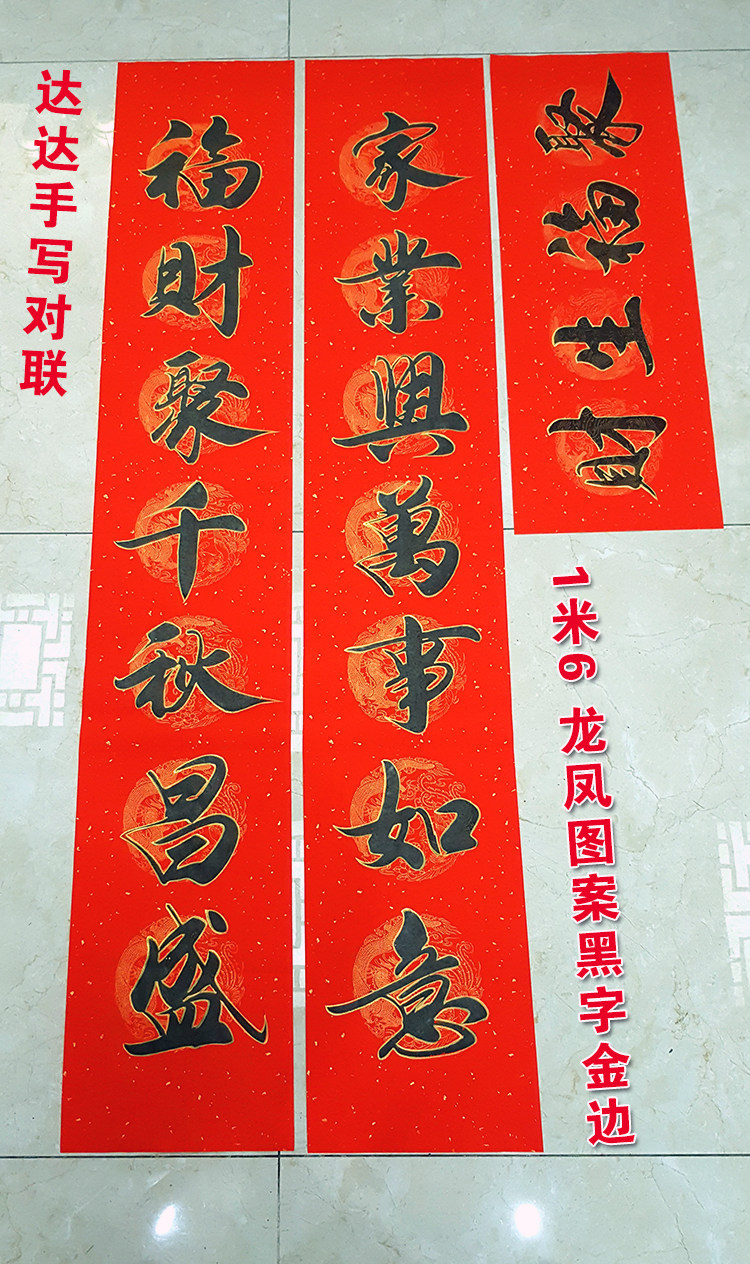 达达手写对联
家業興萬事如意
福財聚千秋昌盛
聚福生財
1米6 龙凤图案黑字金边